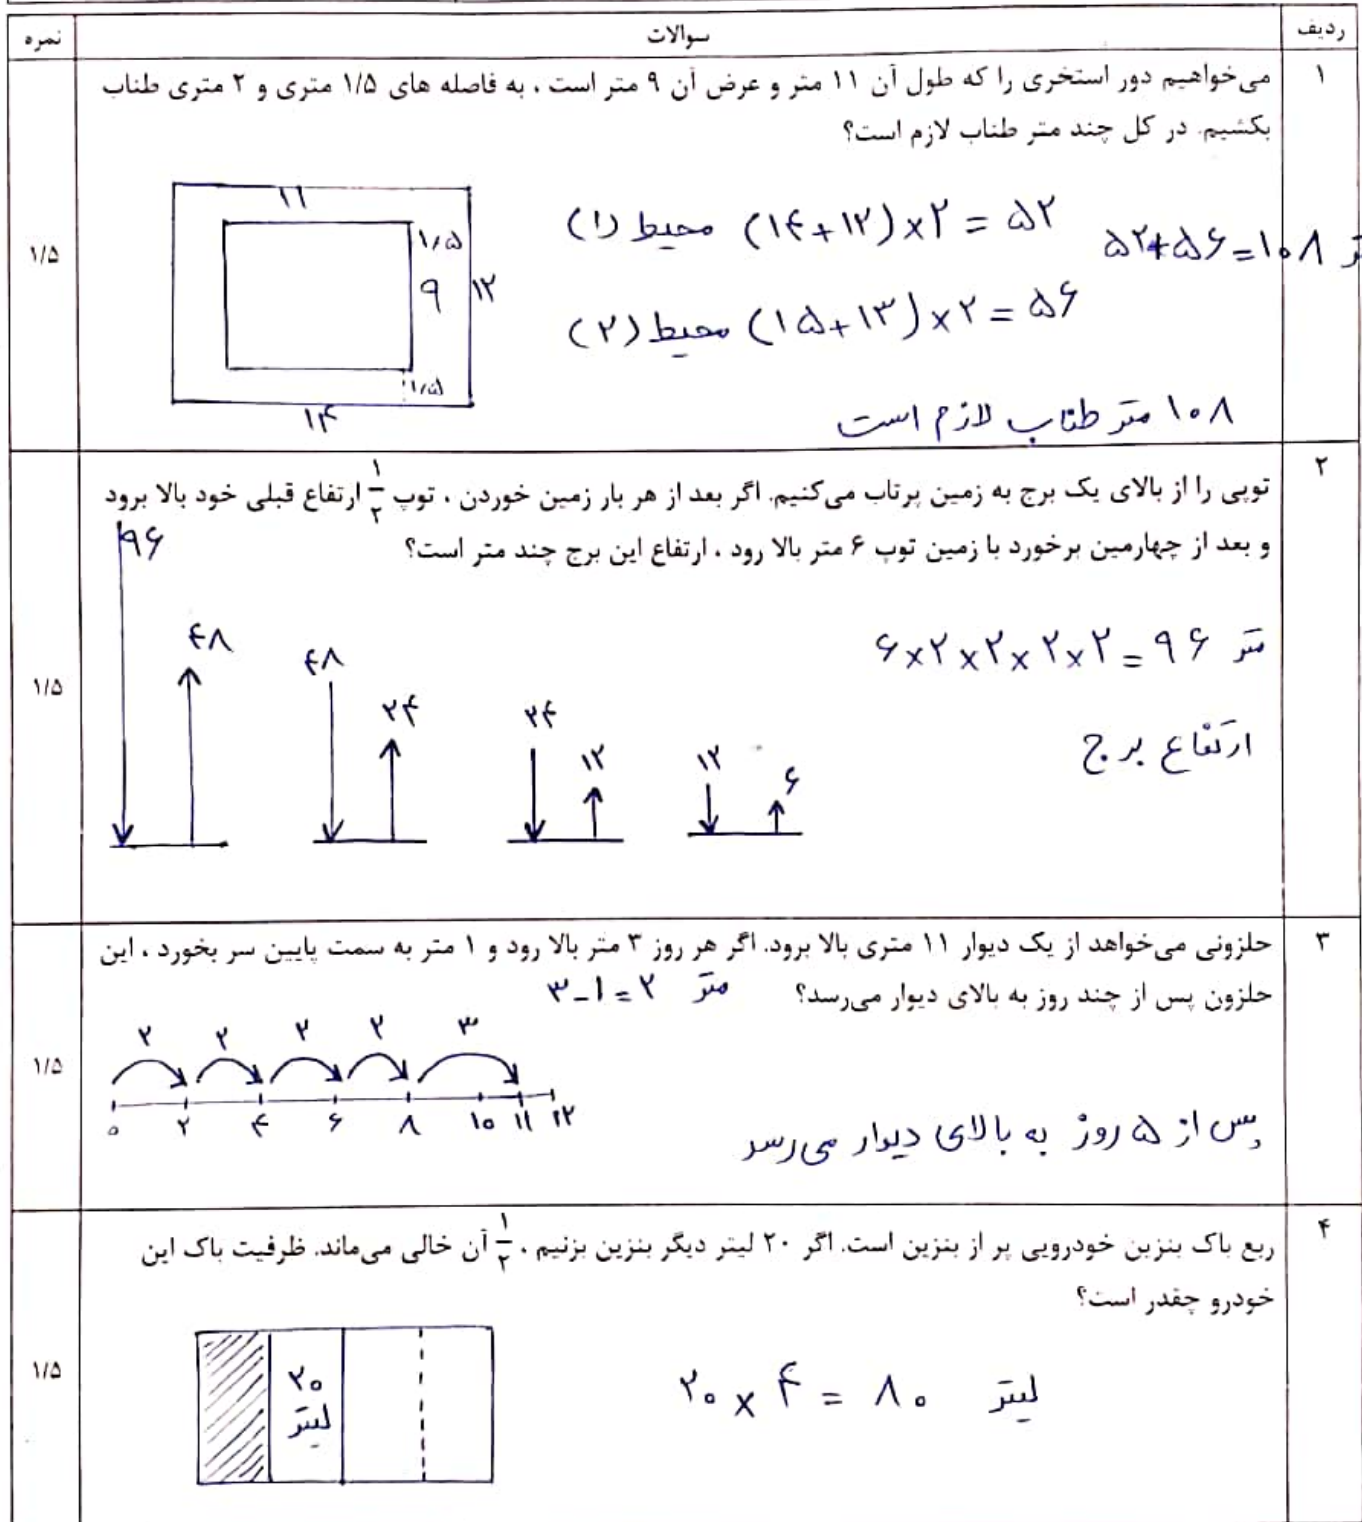 ردیف سوالات نمره
۱ می‌خواهیم دور استخری را که طول آن ۱۱ متر و عرض آن ۹ متر است ، به فاصله های ۱/۵ متری و ۲ متری طناب
بکشیم. در کل چند متر طناب لازم است؟
۱/۵
۱۱
۱/۵
۹
۱۲
۱/۵
۱۴
محیط (۱) (۱۴+۱۲)×۲ = ۵۲
۵۲+۵۶=۱۰۸
محیط (۲) (۱۵+۱۳)×۲ = ۵۶
۱۰۸ متر طناب لازم است
۲ توپی را از بالای یک برج به زمین پرتاب می‌کنیم. اگر بعد از هر بار زمین خوردن ، توپ ۱/۲ ارتفاع قبلی خود بالا برود
و بعد از چهارمین برخورد با زمین توپ ۶ متر بالا رود ، ارتفاع این برج چند متر است؟
۱/۵
۹۶ ۴۸ ۴۸ ۲۴ ۲۴ ۱۲ ۱۲ ۶
۶×۲×۲×۲×۲=۹۶ متر
ارتفاع برج
۳ حلزونی می‌خواهد از یک دیوار ۱۱ متری بالا برود. اگر هر روز ۳ متر بالا رود و ۱ متر به سمت پایین سر بخورد ، این
حلزون پس از چند روز به بالای دیوار می‌رسد؟ ۳-۱=۲ متر
۱/۵
۲ ۲ ۲ ۲ ۳
۰ ۲ ۴ ۶ ۸ ۱۰ ۱۱ ۱۲
پس از ۵ روز به بالای دیوار می‌رسد
۴ ربع باک بنزین خودرویی پر از بنزین است. اگر ۲۰ لیتر دیگر بنزین بزنیم ، ۱/۲ آن خالی می‌ماند. ظرفیت باک این
خودرو چقدر است؟
۱/۵
۲۰
لیتر
۲۰ × ۴ = ۸۰ لیتر